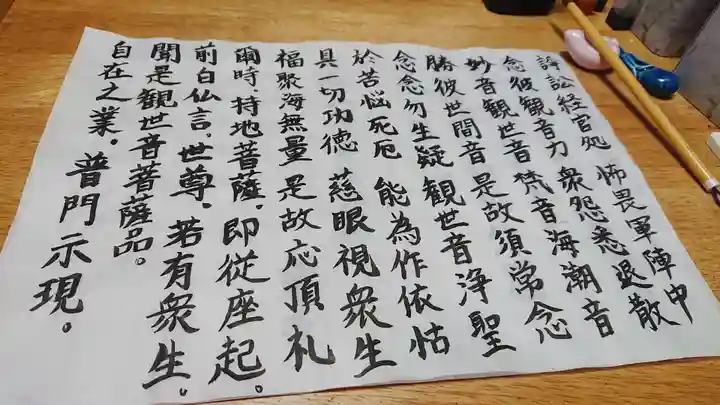 諍訟経官処 怖畏軍陣中
念彼観音力 衆怨悉退散
妙音観世音 梵音海潮音
勝彼世間音 是故須常念
念念勿生疑 観世音浄聖
於苦悩死厄 能為作依怙
具一切功徳 慈眼視衆生
福聚海無量 是故応頂礼
爾時、持地菩薩、即従座起。
前白仏言、世尊、若有衆生。
聞是観世音菩薩品。
自在之業。普門示現。